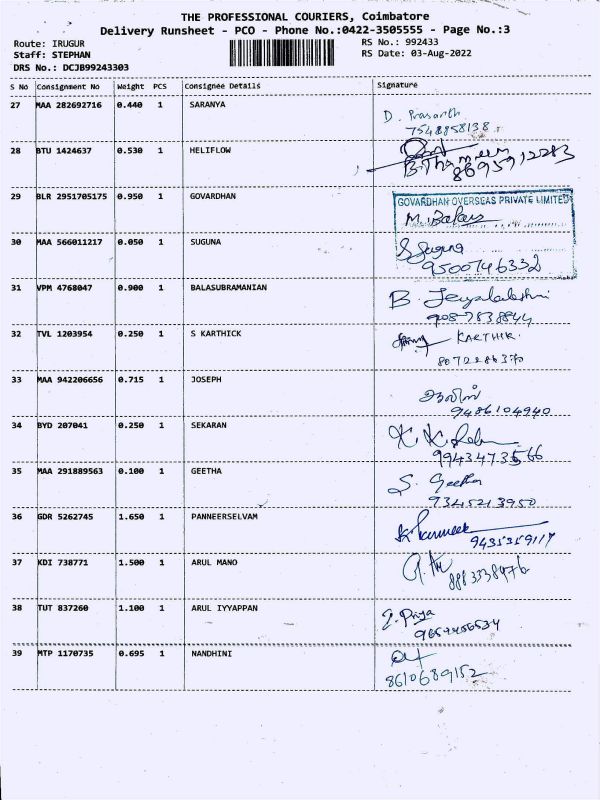 THE PROFESSIONAL COURIERS, Coimbatore
Delivery Runsheet - PCO - Phone No.:0422-3505555 - Page No.:3
Route: IRUGUR RS No.: 992433
Staff: STEPHAN RS Date: 03-Aug-2022
DRS No.: DCJB99243303
S No Consignment No Weight PCS Consignee Details Signature
27 MAA 282692716 0.440 1 SARANYA D. Prasanth
7548858138
28 BTU 1424637 0.530 1 HELIFLOW
8695912283
29 BLR 2951705175 0.950 1 GOVARDHAN GOVARDHAN OVERSEAS PRIVATE LIMITED
30 MAA 566011217 0.050 1 SUGUNA S Suguna
9500746332
31 VPM 4768047 0.900 1 BALASUBRAMANIAN B. Jeyalakshmi
9087838844
32 TVL 1203954 0.250 1 S KARTHICK KARTHIK.
8072286370
33 MAA 942206656 0.715 1 JOSEPH
9486104940
34 BYD 207041 0.250 1 SEKARAN
35 MAA 291889563 0.100 1 GEETHA S. Geetha
9345213950
36 GDR 5262745 1.650 1 PANNEERSELVAM
9435359117
37 KDI 738771 1.500 1 ARUL MANO
38 TUT 837260 1.100 1 ARUL IYYAPPAN Priya
39 MTP 1170735 0.695 1 NANDHINI
8610689152